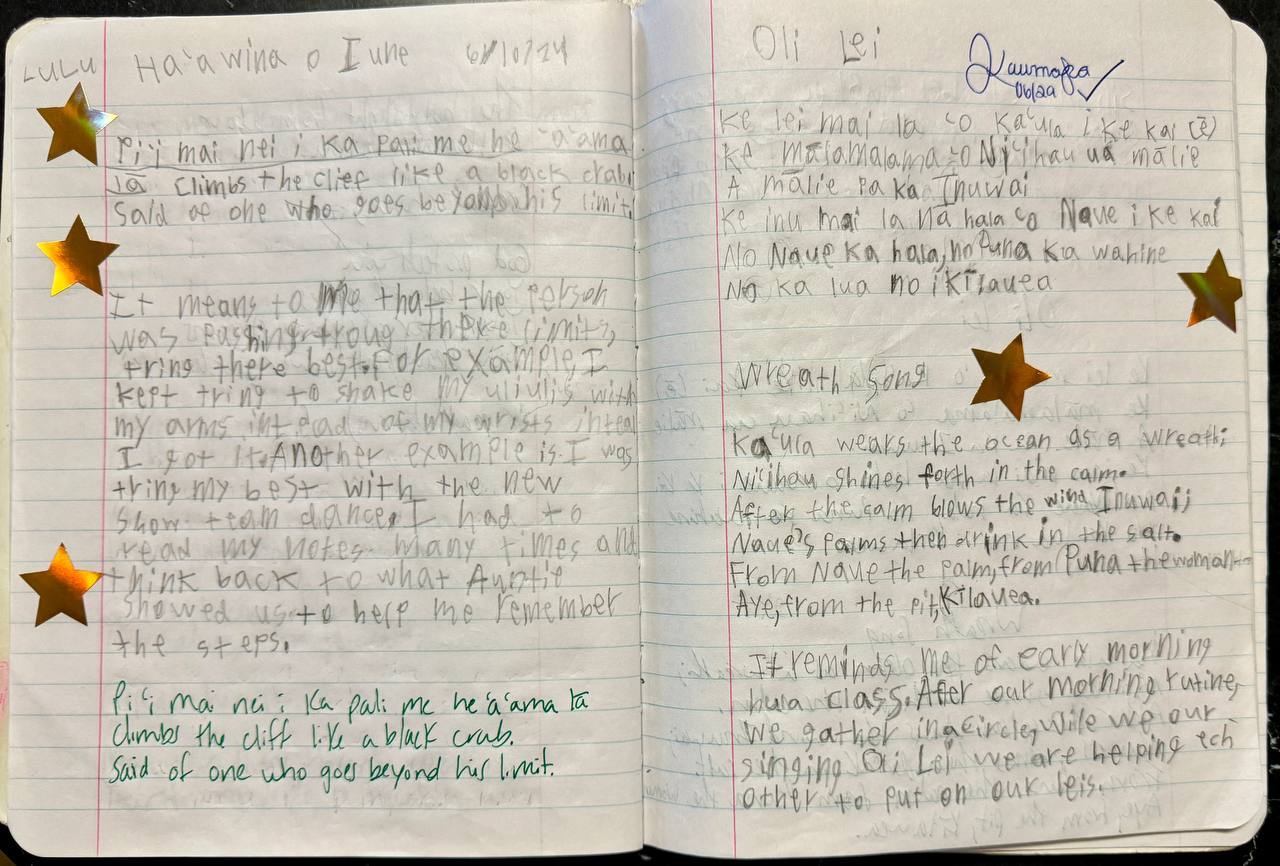 LuLu Ha'awina o Iune 6/10/24
Pi'i mai nei i Ka pali me he 'a'ama
lā Climbs the clief like a black crab.
Said of one who goes beyond his limit.
It means to me that the person
was Pashing troug there limits,
tring there best. For example, I
kept tring to shake my uliulis with
my arms intead of my wrists inteal
I got it. Another example is I was
tring my best with the new
show team dance. I had to
read my notes many times and
think back to what Auntie
showed us to help me remember
the steps.
Pi'i mai nei i Ka pali me he 'a'ama lā
climbs the cliff like a black crab.
Said of one who goes beyond his limit.
Oli Lei
06/29
Ke lei mai la 'o Ka'ula i ke kai (ē)
Ke mālamalama 'o Ni'ihau ua mālie
A mālie pa ka Inuwai
Ke inu mai la nā hala 'o Naue i ke kai
No Naue Ka hala, no Puna Ka wahine
No ka lua no i Kīlauea
Wreath Song
Ka'ula wears the ocean as a wreath;
Ni'ihau shines forth in the calm.
After the calm blows the wind Inuwai;
Naue's palms then drink in the salt.
From Naue the palm, from Puna the woman-
Aye, from the pit, Kīlauea.
It reminds me of early morning
hula class. After our morning rutine,
we gather in a circle, wile we our
singing Oli Lei we are helping ech
other to put on our leis.